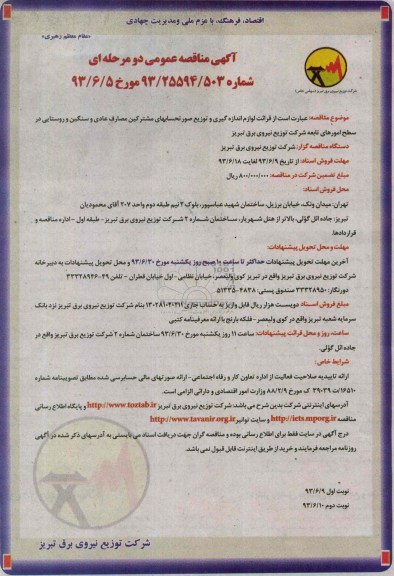 اقتصاد، فرهنگ، با عزم ملی ومدیریت جهادی
«مقام معظم رهبری»
آگهی مناقصه عمومی دو مرحله ای
شماره ۹۳/۲۵۵۹۴/۵۰۳ مورخ ۹۳/۶/۵
شرکت توزیع نیروی برق تبریز (سهامی خاص)
موضوع مناقصه: عبارت است از قرائت لوازم اندازه گیری و توزیع صورتحسابهای مشترکین مصارف عادی و سنگین و روستایی در
سطح امورهای تابعه شرکت توزیع نیروی برق تبریز
دستگاه مناقصه گزار: شرکت توزیع نیروی برق تبریز
مهلت فروش اسناد: از تاریخ ۹۳/۶/۹ لغایت ۹۳/۶/۱۸
مبلغ تضمین شرکت در مناقصه: ۸۰۰/۰۰۰/۰۰۰ ریال
محل فروش اسناد:
تهران: میدان ونک، خیابان برزیل، ساختمان شهید عباسپور، بلوک ۲ نیم طبقه دوم واحد ۲۰۷ آقای محمودیان
تبریز: جاده ائل گؤلی، بالاتر از هتل شهریار، ساختمان شماره ۲ شرکت توزیع نیروی برق تبریز- طبقه اول - اداره مناقصه و
قراردادها.
مهلت و محل تحویل پیشنهادات:
آخرین مهلت تحویل پیشنهادات حداکثر تا ساعت ۱۰ صبح روز یکشنبه مورخ ۹۳/۶/۳۰ و محل تحویل پیشنهادات به دبیرخانه
شرکت توزیع نیروی برق تبریز واقع در تبریز کوی ولیعصر، خیابان نظامی - اول خیابان قطران - تلفن ۴۹-۳۳۳۲۸۹۴۶
دورنگار: ۳۳۳۲۸۹۵۰ صندوق پستی: ۴۸۳۸-۵۱۳۳۵
مبلغ فروش اسناد: دویست هزار ریال قابل واریز به حساب جاری بنام شرکت توزیع نیروی برق تبریز نزد بانک
سرمایه شعبه تبریز واقع در کوی ولیعصر - فلکه بارنج با ارائه معرفینامه کتبی
ساعت، روز و محل قرائت پیشنهادات: ساعت ۱۱ روز یکشنبه مورخ ۹۳/۶/۳۰ ساختمان شماره ۲ شرکت توزیع نیروی برق تبریز واقع در
جاده ائل گؤلی.
شرایط خاص:
ارائه تاییدیه صلاحیت فعالیت از اداره تعاون کار و رفاه اجتماعی- ارائه صورتهای مالی حسابرسی شده مطابق تصویبنامه شماره
۳۹۰۳۹/ت۱۶۵۱۰ ک مورخ ۸۸/۲/۹ وزارت امور اقتصادی و دارائی الزامی است.
آدرسهای اینترنتی شرکت بدین شرح می باشد: شرکت توزیع نیروی برق تبریز http://www.toztab.ir و پایگاه اطلاع رسانی
مناقصه http://iets.mporg.ir و سایت توانیر http://www.tavanir.org.ir
درج آگهی در سایت فقط برای اطلاع رسانی بوده و مناقصه گران جهت دریافت اسناد می بایستی به آدرسهای ذکر شده در آگهی
روزنامه مراجعه فرمایند و خرید از طریق اینترنت قابل قبول نمی باشد.
نوبت اول ۹۳/۶/۹
نوبت دوم ۹۳/۶/۱۰
شرکت توزیع نیروی برق تبریز